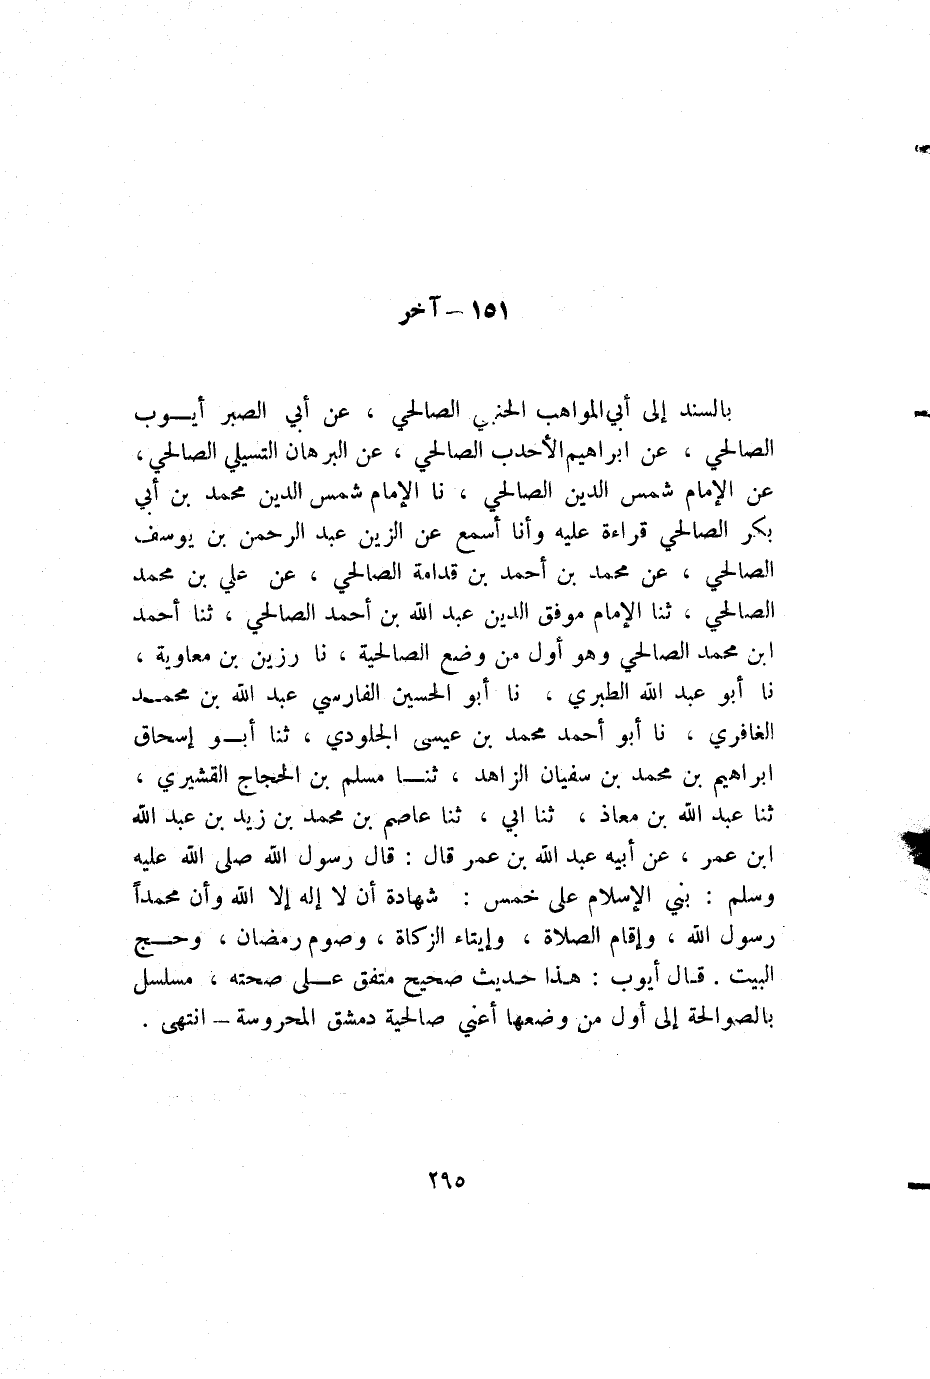 ١٥١ – آخر
بالسند إلى أبي المواهب الحنبلي الصالحي ، عن أبي الصبر أيــوب
الصالحي ، عن ابراهيم الأحدب الصالحي ، عن البرهان التسيلي الصالحي ،
عن الإمام شمس الدين الصالحي ، نا الإمام شمس الدين محمد بن أبي
بكر الصالحي قراءة عليه وأنا أسمع عن الزين عبد الرحمن بن يوسف
الصالحي ، عن محمد بن أحمد بن قدامة الصالحي ، عن علي بن محمد
الصالحي ، ثنا الإمام موفق الدين عبد الله بن أحمد الصالحي ، ثنا أحمد
ابن محمد الصالحي وهو أول من وضع الصالحية ، نا رزين بن معاوية ،
نا أبو عبد الله الطبري ، نا أبو الحسين الفارسي عبد الله بن محمــد
الغافري ، نا أبو أحمد محمد بن عيسى الجلودي ، ثنا أبــو إسحاق
ابراهيم بن محمد بن سفيان الزاهد ، ثنــا مسلم بن الحجاج القشيري ،
ثنا عبد الله بن معاذ ، ثنا ابي ، ثنا عاصم بن محمد بن زيد بن عبد الله
ابن عمر ، عن أبيه عبد الله بن عمر قال : قال رسول الله صلى الله عليه
وسلم : بني الإسلام على خمس : شهادة أن لا إله إلا الله وأن محمداً
رسول الله ، وإقام الصلاة ، وإيتاء الزكاة ، وصوم رمضان ، وحــج
البيت . قـال أيوب : هـذا حـديث صحيح متفق عــلى صحته ، مسلسل
بالصوالحة إلى أول من وضعها أعني صالحية دمشق المحروسة – انتهى .
٢٩٥